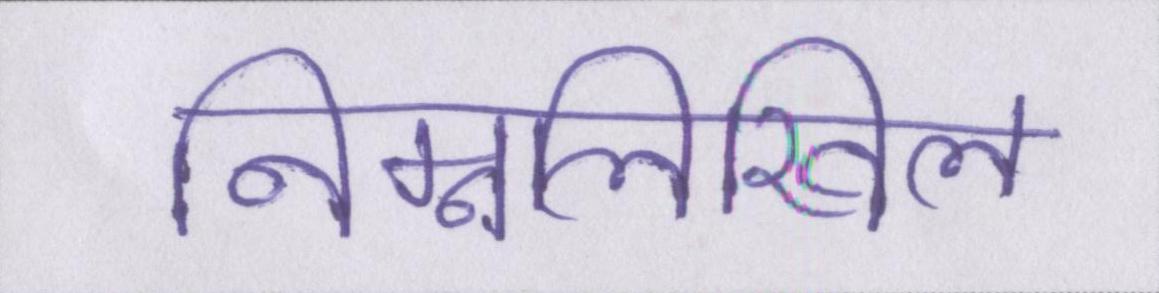 निम्नलिखित